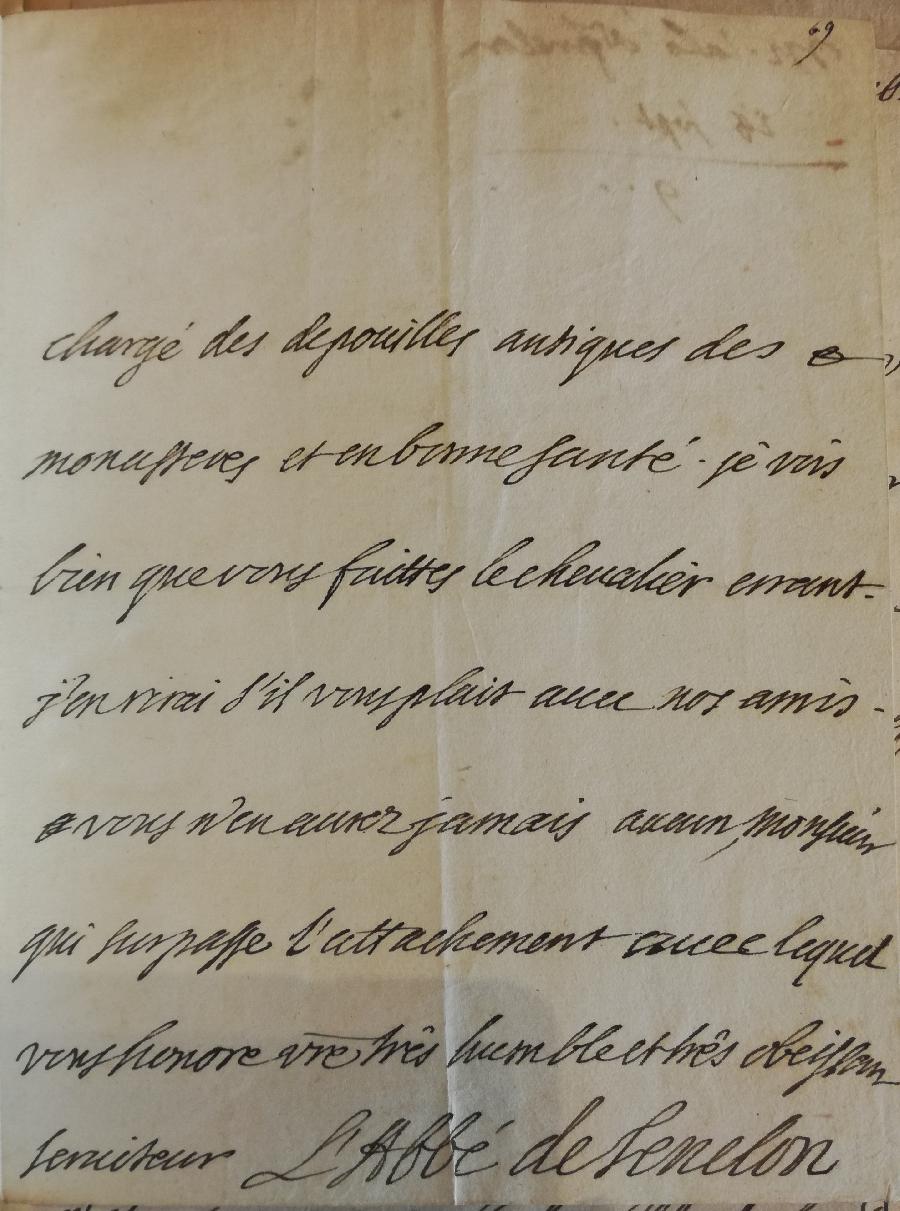 69
chargé des depouilles antiques des
monasteres et en bonne santé. je vois
bien que vous faittes le chevalier errant.
j'en rirai s'il vous plait avec nos amis.
vous n'en aurez jamais aucun, monsieur
qui surpasse l'attachement avec lequel
vous honore vre três humble et três obeissan
serviteur L'Abbé de Fenelon